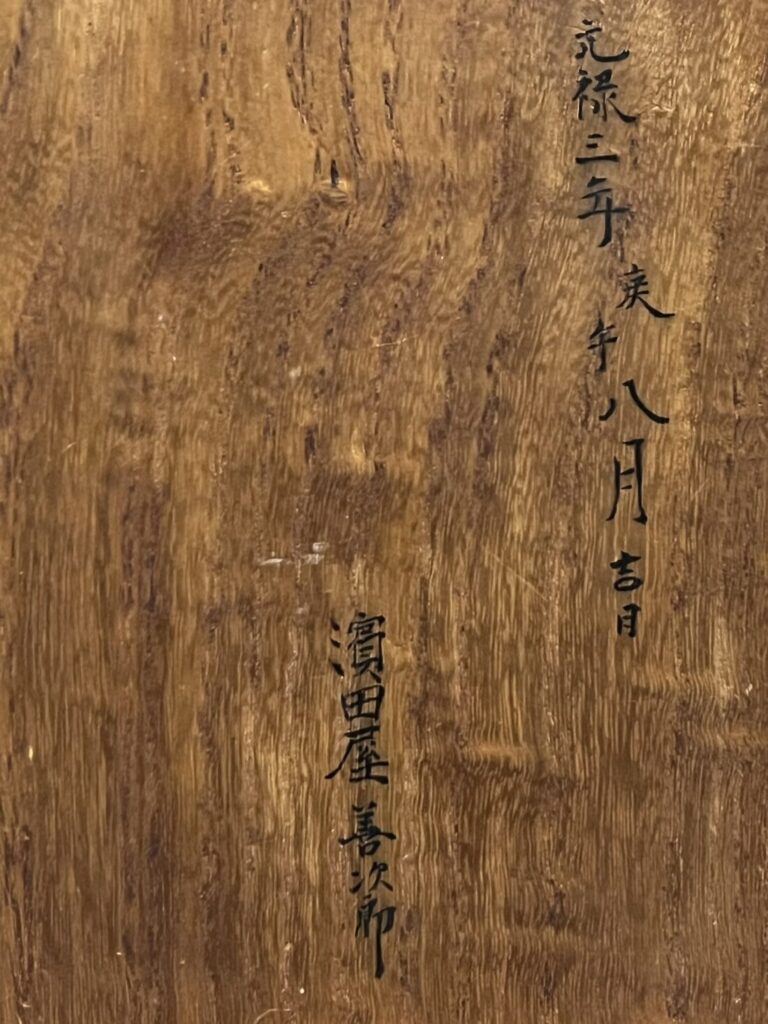 元禄三年庚午八月吉日
濱田屋善次郎